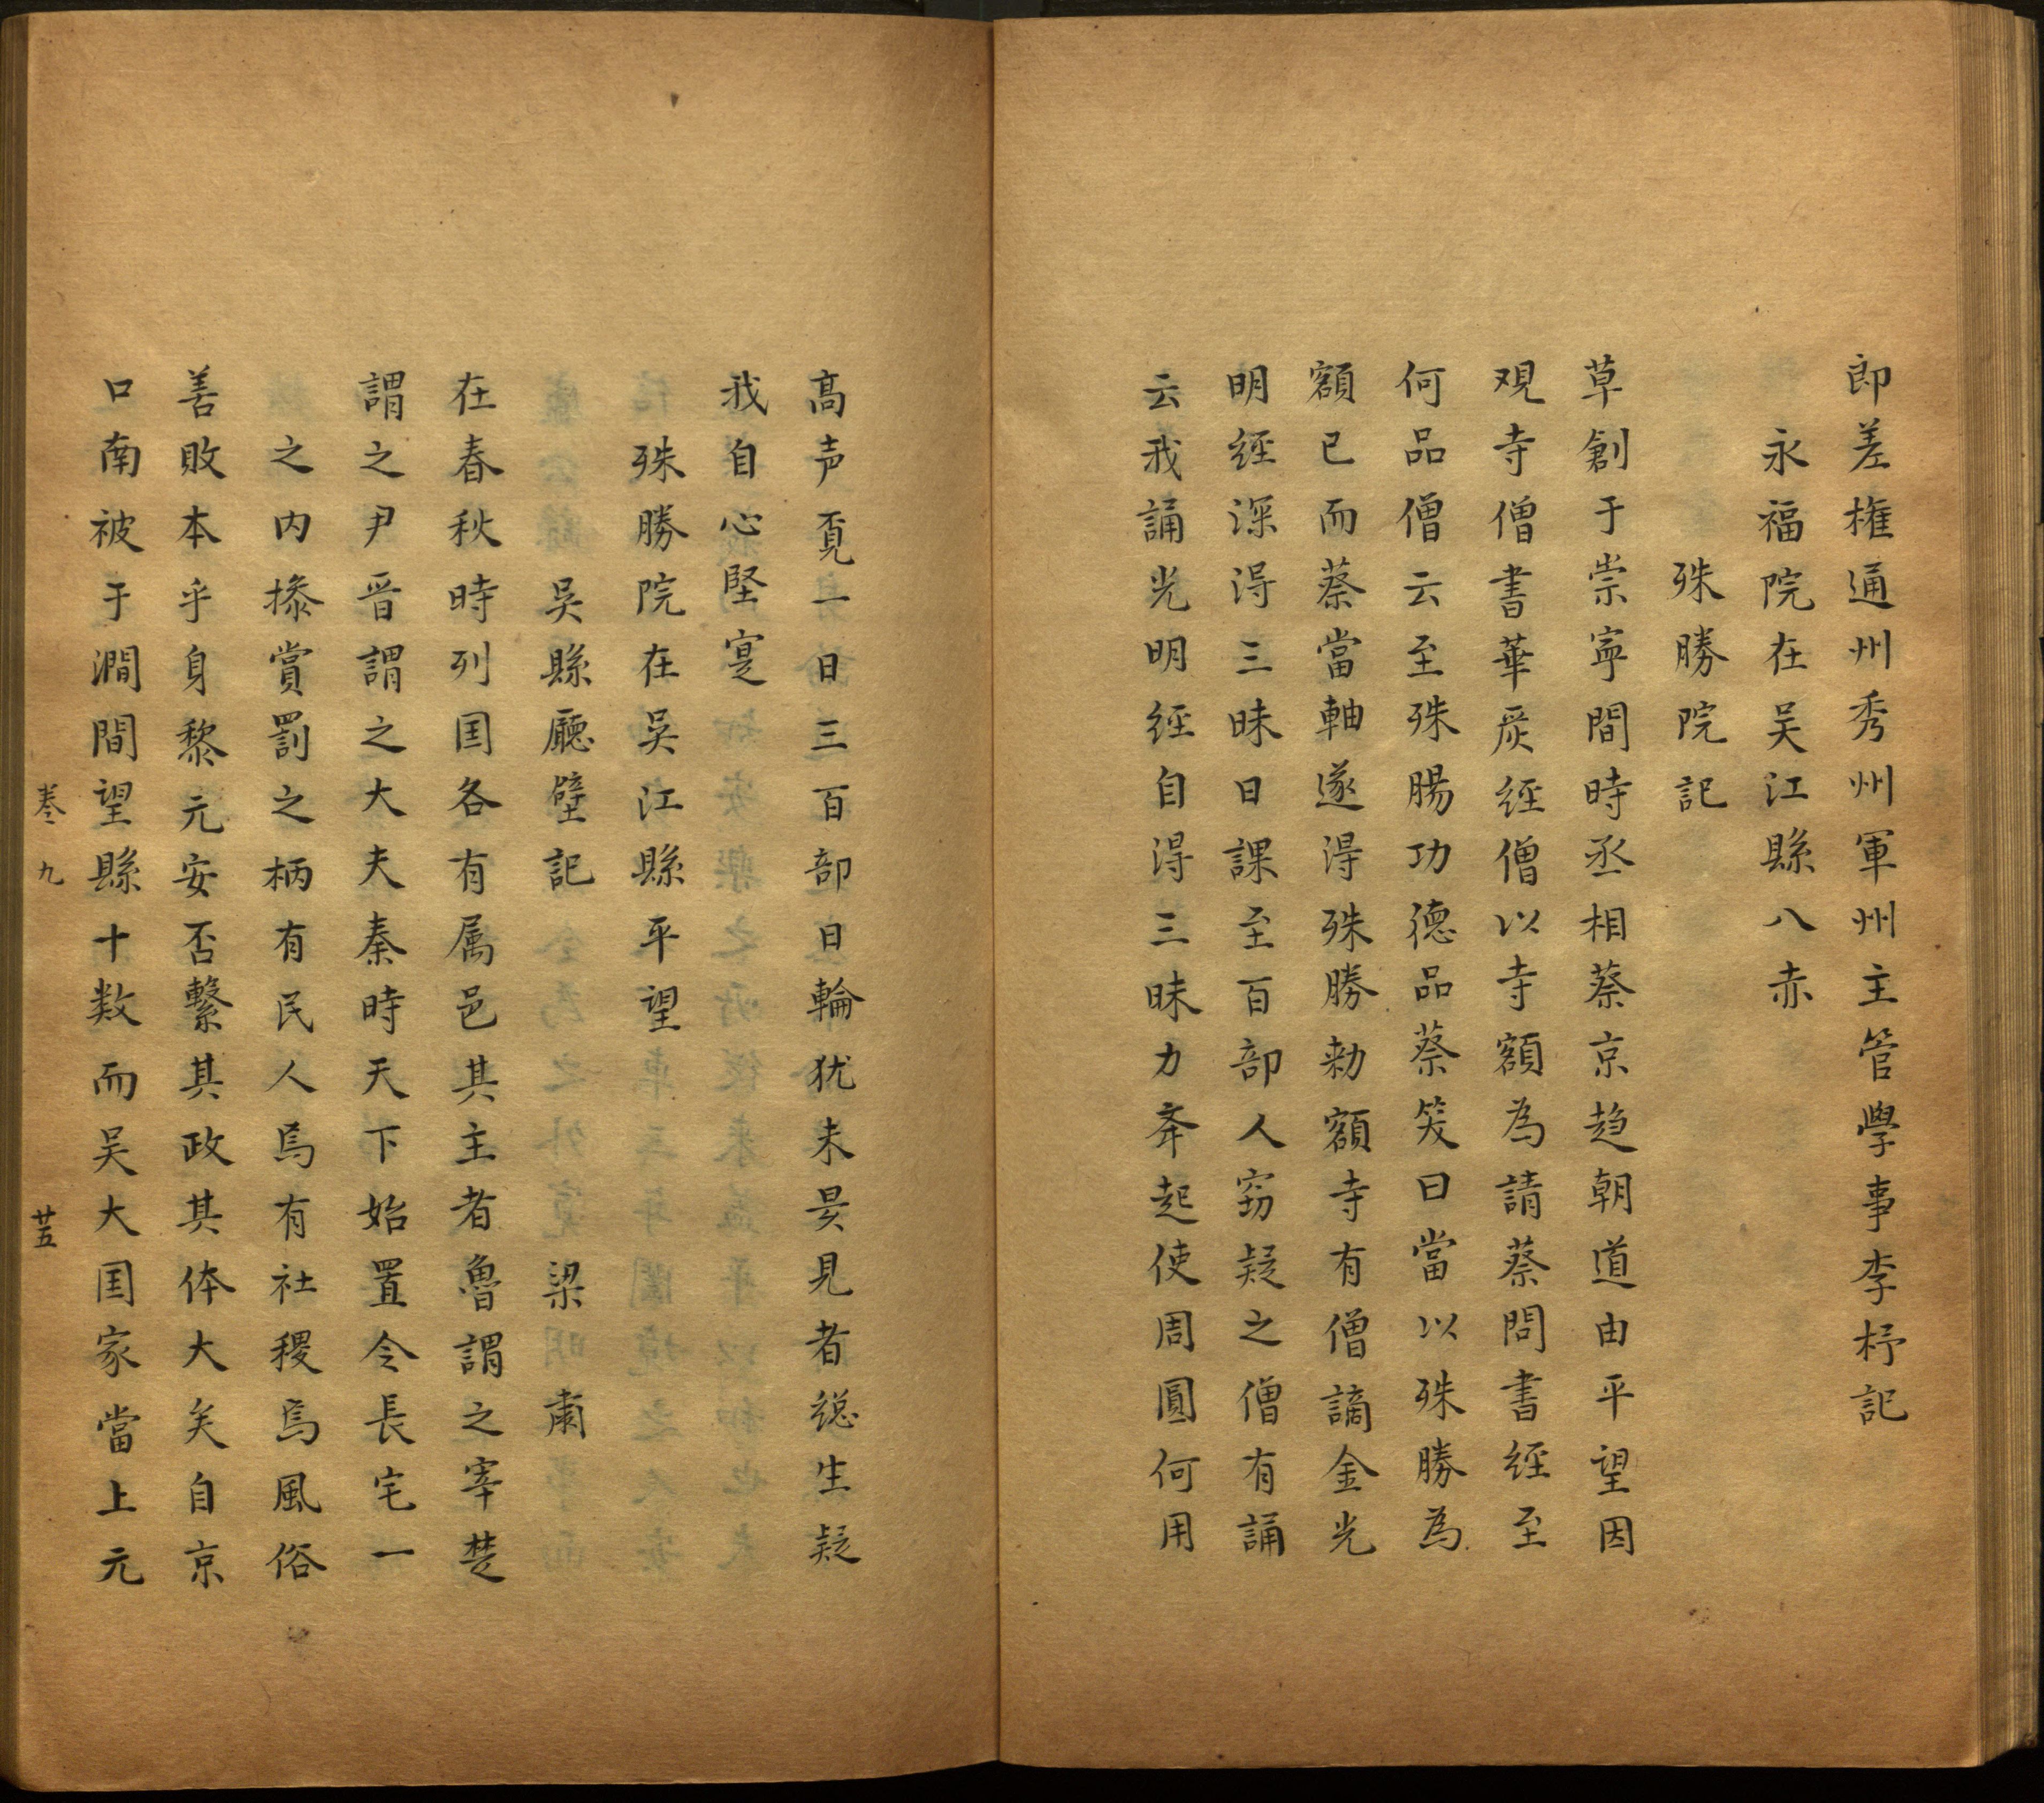 郎差權通州秀州軍州主管學事李杼記
永福院在吴江縣八赤
殊勝院記
草創于崇寧間時丞相蔡京趋朝道由平望因
观寺僧書華嚴经僧以寺額為請蔡問書经至
何品僧云至殊勝功德品蔡笑曰當以殊勝為
額已而蔡當軸遂得殊勝勑額寺有僧誦金光
明经深得三昧日課至百部人窃疑之僧有誦
云我誦光明经自得三昧力奔起使周圓何用
高声覔一日三百部日輪犹未昃見者緫生疑
我自心堅寔
殊勝院在吴江縣平望
吴縣廳壁記 梁肅
在春秋時列国各有属邑其主者魯謂之宰楚
謂之尹晋謂之大夫秦時天下始置令長宅一
之内操賞罰之柄有民人焉有社稷焉風俗
善敗本乎身黎元安否繫其政其体大矣自京
口南被于澗間望縣十数而吴大国家當上元
卷九 廿五